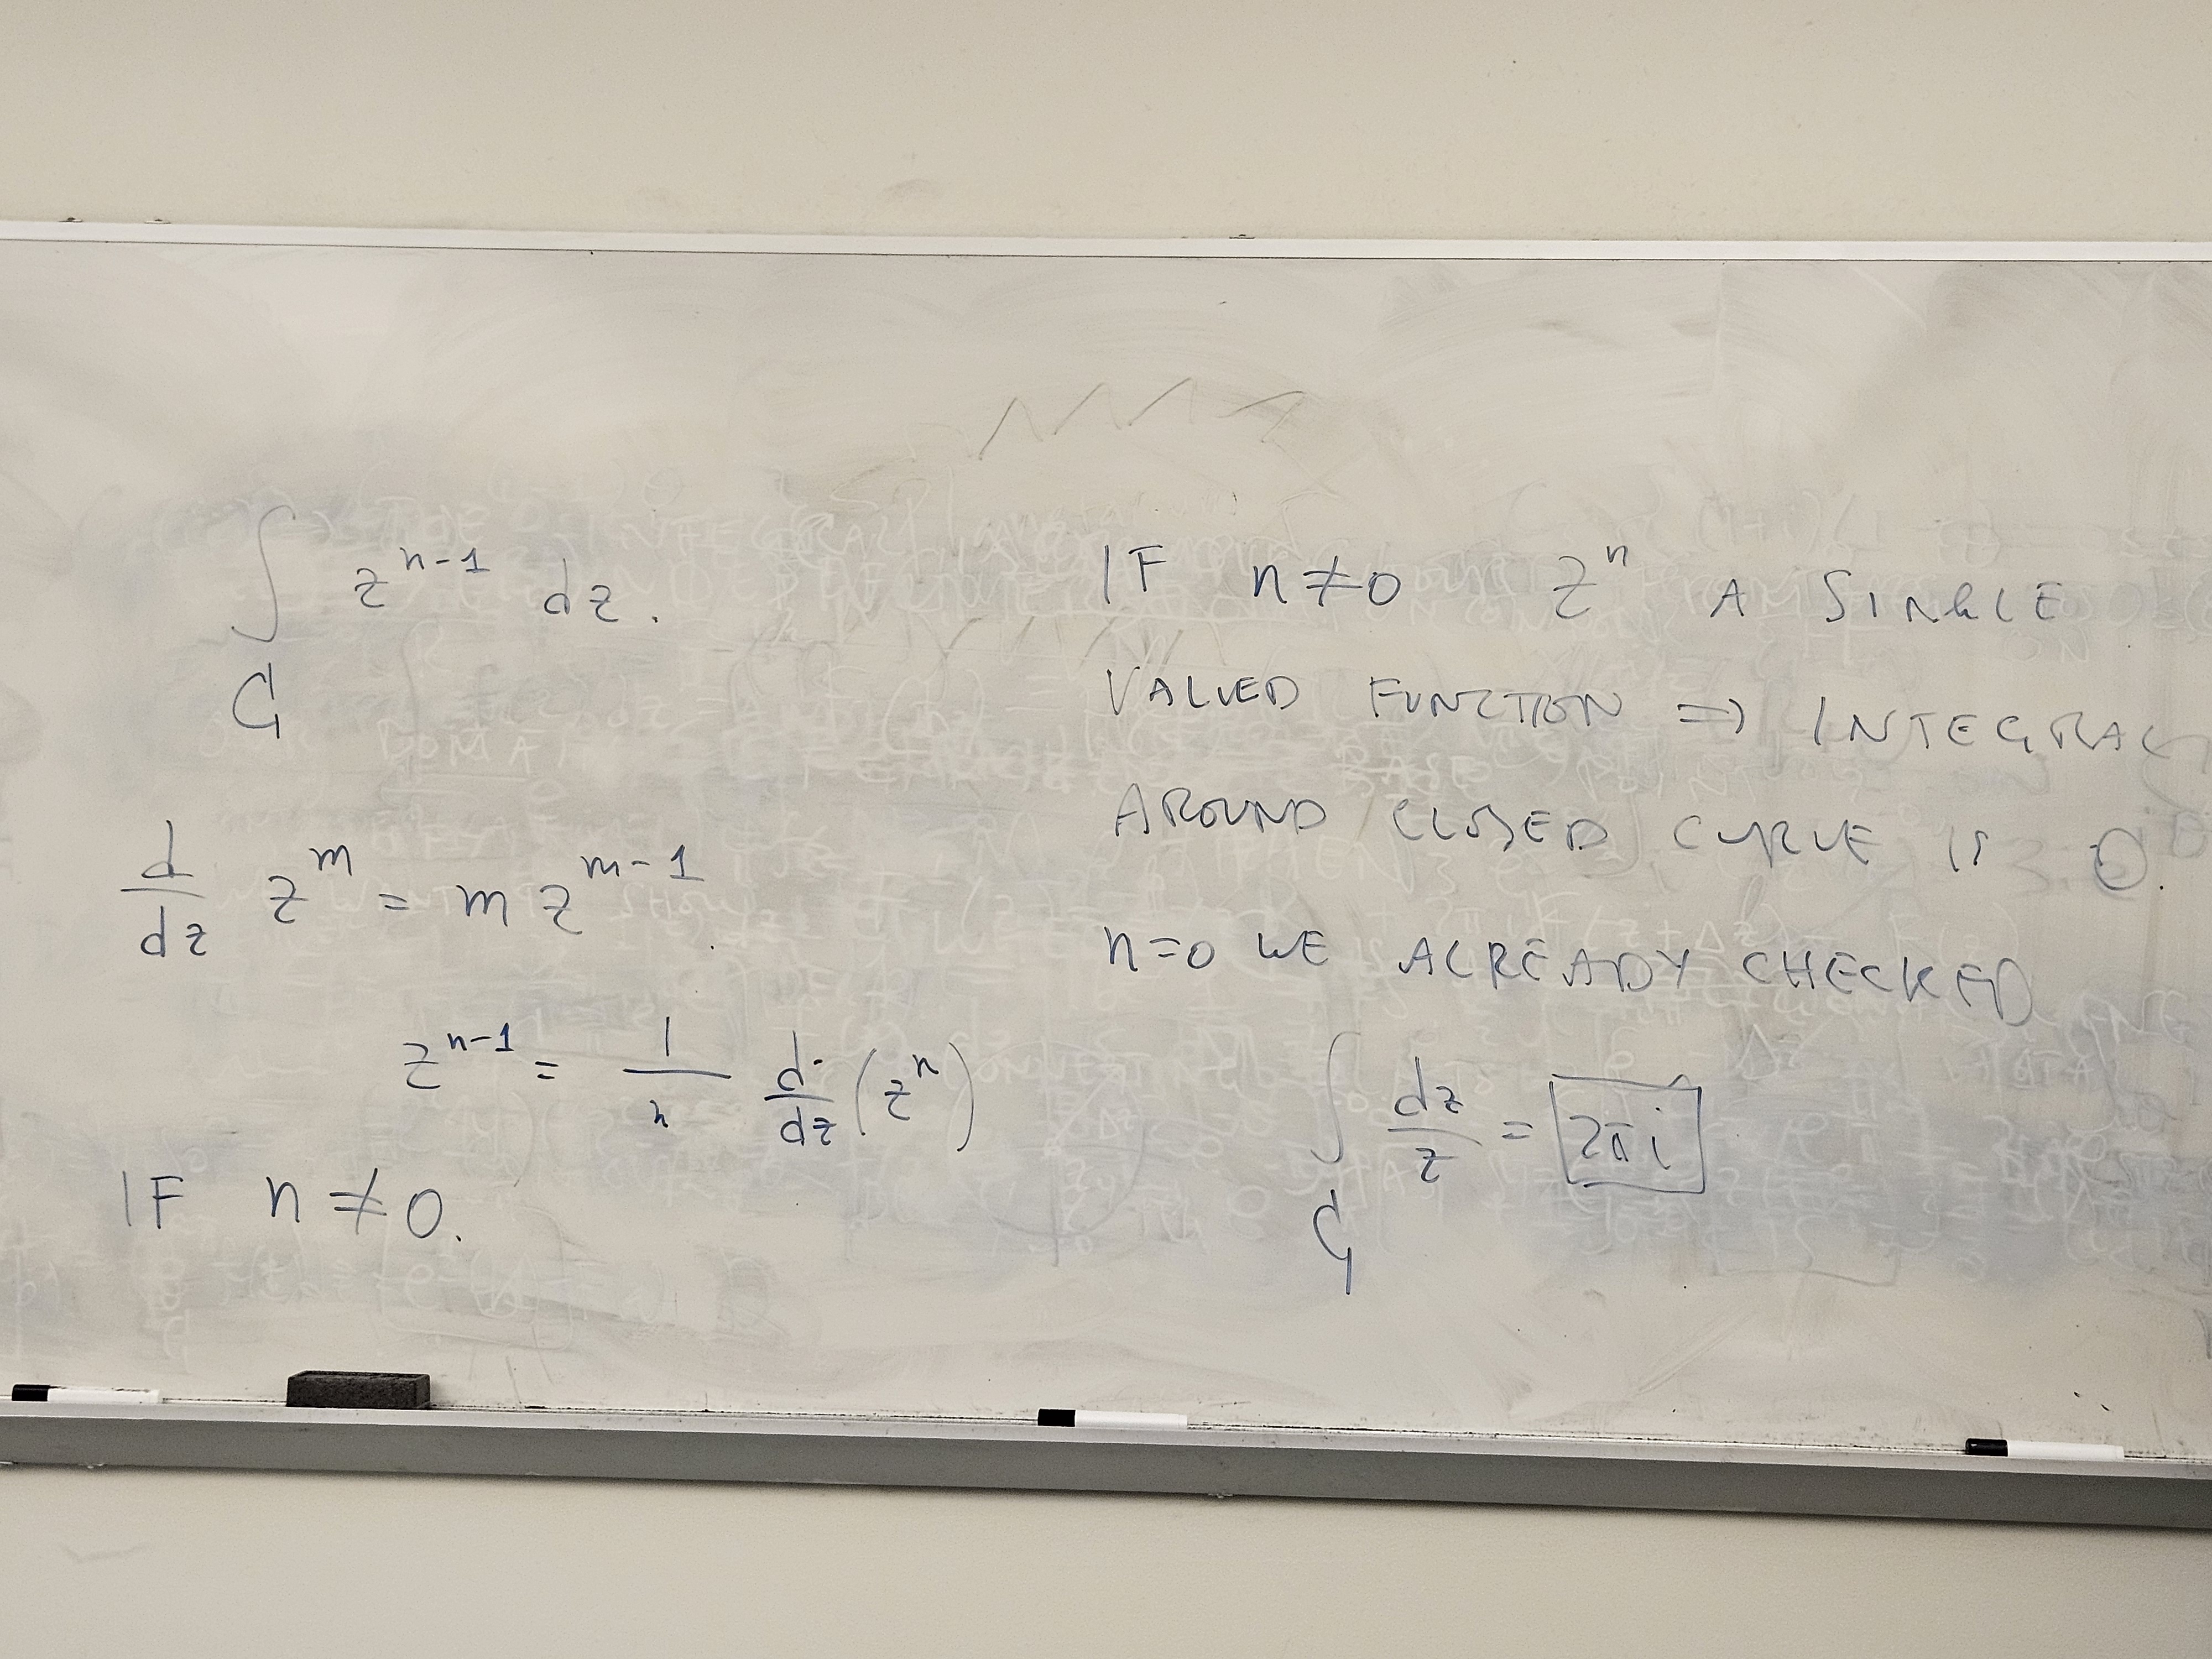 ∫_C z^{n-1} dz.
d/dz z^m = m z^{m-1}
z^{n-1} = 1/n d/dz (z^n)
IF n ≠ 0.
IF n ≠ 0 z^n A SINGLE
VALUED FUNCTION ⇒ INTEGRAL
AROUND CLOSED CURVE IS 0.
n=0 WE ALREADY CHECKED
∫_C dz/z = 2πi